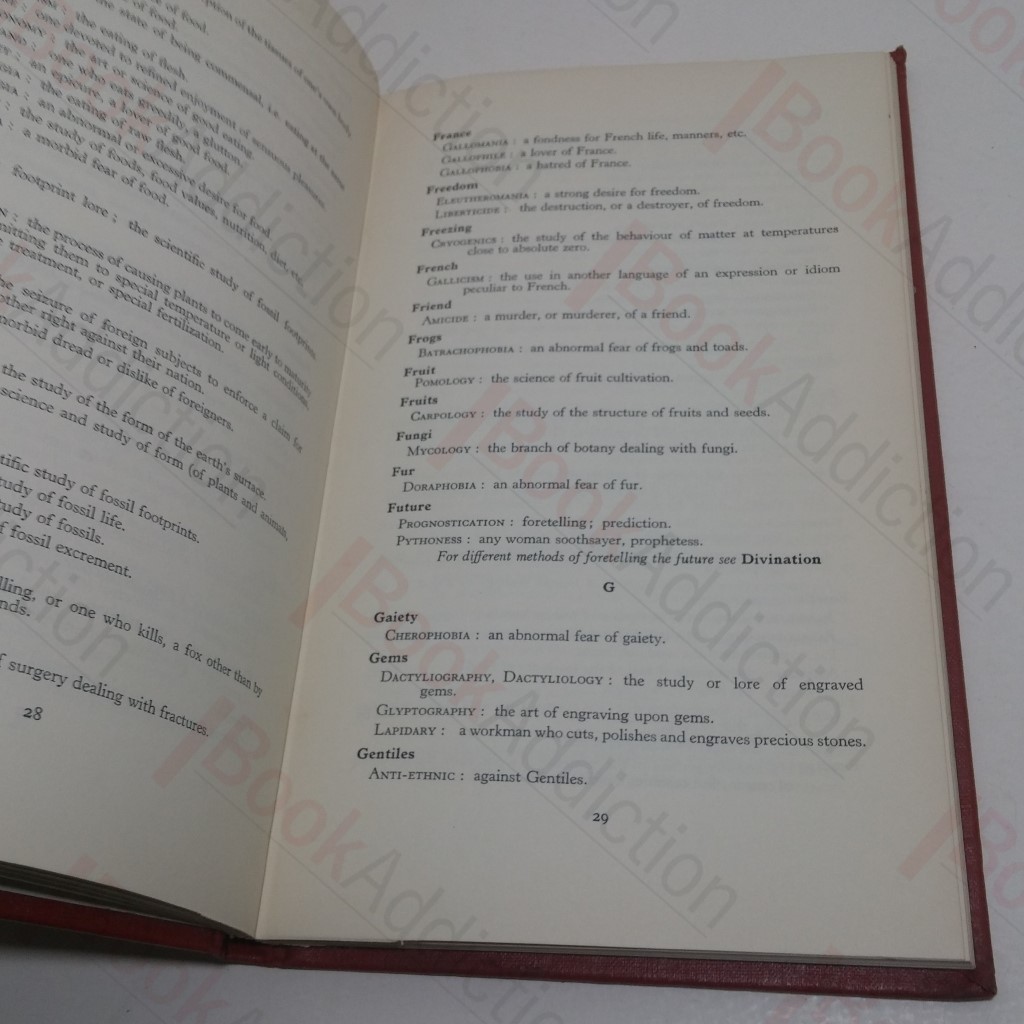 the eating of flesh.
one devoted to refined enjoyment of sensuous pleasures.
the art or science of good eating.
one who eats greedily, a glutton.
an epicure, a lover of good food.
the eating of raw flesh.
an abnormal or excessive desire for food.
the study of foods, food values, nutrition, diet, etc.
a morbid fear of food.
footprint lore ; the scientific study of fossil footprints
: the process of causing plants to come early to maturity
them to special temperature or light conditions,
treatment, or special fertilization.
seizure of foreign subjects to enforce a claim for
other right against their nation.
morbid dread or dislike of foreigners.
the study of the form of the earth's surface.
science and study of form (of plants and animals,
study of fossil footprints.
study of fossil life.
study of fossils.
fossil excrement.
or one who kills, a fox other than by
of surgery dealing with fractures.
28
France
GALLOMANIA : a fondness for French life, manners, etc.
GALLOPHILE : a lover of France.
GALLOPHOBIA : a hatred of France.
Freedom
ELEUTHEROMANIA : a strong desire for freedom.
LIBERTICIDE : the destruction, or a destroyer, of freedom.
Freezing
CRYOGENICS : the study of the behaviour of matter at temperatures
close to absolute zero.
French
GALLICISM : the use in another language of an expression or idiom
peculiar to French.
Friend
AMICIDE : a murder, or murderer, of a friend.
Frogs
BATRACHOPHOBIA : an abnormal fear of frogs and toads.
Fruit
POMOLOGY : the science of fruit cultivation.
Fruits
CARPOLOGY : the study of the structure of fruits and seeds.
Fungi
MYCOLOGY : the branch of botany dealing with fungi.
Fur
DORAPHOBIA : an abnormal fear of fur.
Future
PROGNOSTICATION : foretelling ; prediction.
PYTHONESS : any woman soothsayer, prophetess.
For different methods of foretelling the future see Divination
G
Gaiety
CHEROPHOBIA : an abnormal fear of gaiety.
Gems
DACTYLIOGRAPHY, DACTYLIOLOGY : the study or lore of engraved
gems.
GLYPTOGRAPHY : the art of engraving upon gems.
LAPIDARY : a workman who cuts, polishes and engraves precious stones.
Gentiles
ANTI-ETHNIC : against Gentiles.
29
BookAddiction